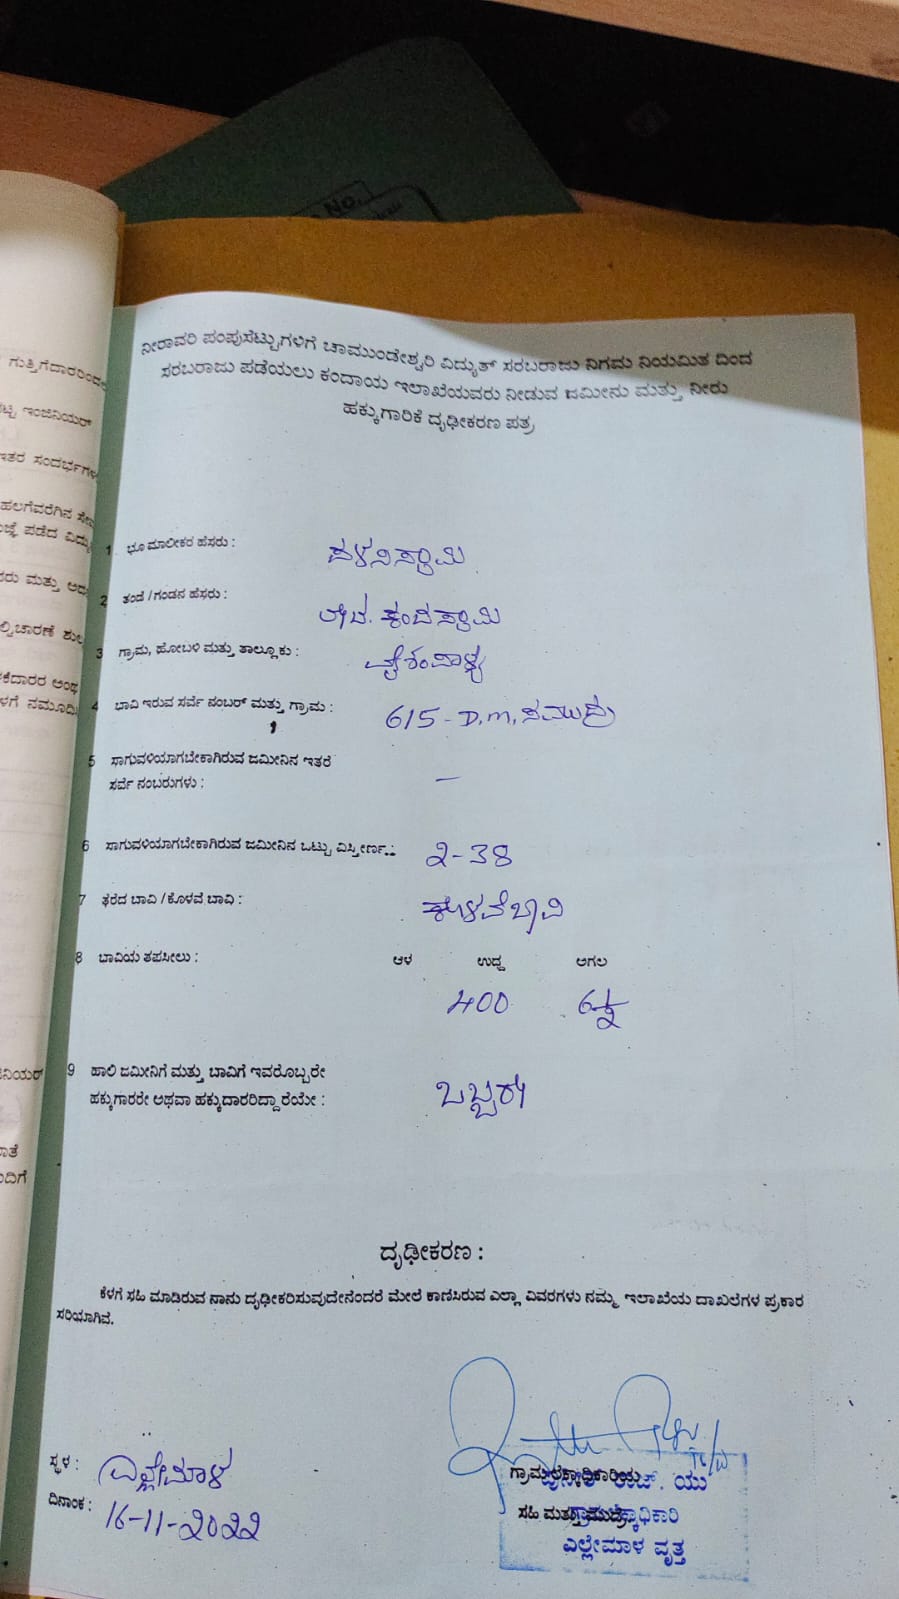 No.
ಗುತ್ತಿಗೆದಾರರಿಂದ
ಇಂಜಿನಿಯರ್
ಇತರ ಸಂದರ್ಭಗಳ
ನೀರಾವರಿ ಪಂಪುಸೆಟ್ಟುಗಳಿಗೆ ಚಾಮುಂಡೇಶ್ವರಿ ವಿದ್ಯುತ್ ಸರಬರಾಜು ನಿಗಮ ನಿಯಮಿತ ದಿಂದ
ಸರಬರಾಜು ಪಡೆಯಲು ಕಂದಾಯ ಇಲಾಖೆಯವರು ನೀಡುವ ಜಮೀನು ಮತ್ತು ನೀರು
ಹಕ್ಕುಗಾರಿಕೆ ದೃಢೀಕರಣ ಪತ್ರ
1 ಭೂ ಮಾಲೀಕರ ಹೆಸರು : ಪಳನಿಸ್ವಾಮಿ
2 ತಂದೆ /ಗಂಡನ ಹೆಸರು : ಲೇಟ. ಕಂದಸ್ವಾಮಿ
3 ಗ್ರಾಮ, ಹೋಬಳಿ ಮತ್ತು ತಾಲ್ಲೂಕು :
4 ಬಾವಿ ಇರುವ ಸರ್ವೆ ನಂಬರ್ ಮತ್ತು ಗ್ರಾಮ : 615 - D.m. ಸಮುದ್ರ
5 ಸಾಗುವಳಿಯಾಗಬೇಕಾಗಿರುವ ಜಮೀನಿನ ಇತರೆ
ಸರ್ವೆ ನಂಬರುಗಳು : —
6 ಸಾಗುವಳಿಯಾಗಬೇಕಾಗಿರುವ ಜಮೀನಿನ ಒಟ್ಟು ವಿಸ್ತೀರ್ಣ : ೨-38
7 ತೆರೆದ ಬಾವಿ /ಕೊಳವೆ ಬಾವಿ : ಕೊಳವೆಬಾವಿ
8 ಬಾವಿಯ ತಪಸೀಲು : ಆಳ ಉದ್ದ ಅಗಲ
400 6½
9 ಹಾಲಿ ಜಮೀನಿಗೆ ಮತ್ತು ಬಾವಿಗೆ ಇವರೊಬ್ಬರೇ
ಹಕ್ಕುಗಾರರೇ ಅಥವಾ ಹಕ್ಕುದಾರರಿದ್ದಾರೆಯೇ : ಒಬ್ಬರೇ
ದೃಢೀಕರಣ :
ಕೆಳಗೆ ಸಹಿ ಮಾಡಿರುವ ನಾನು ದೃಢೀಕರಿಸುವುದೇನೆಂದರೆ ಮೇಲೆ ಕಾಣಿಸಿರುವ ಎಲ್ಲಾ ವಿವರಗಳು ನಮ್ಮ ಇಲಾಖೆಯ ದಾಖಲೆಗಳ ಪ್ರಕಾರ
ಸರಿಯಾಗಿವೆ.
ಸ್ಥಳ : ಎಲ್ಲೇಮಾಳ
ದಿನಾಂಕ : 16-11-೨0೨೨
ಗ್ರಾಮಲೆಕ್ಕಾಧಿಕಾರಿಯ
ಸಹಿ ಮತ್ತು ಮುದ್ರೆ
ಎಲ್ಲೇಮಾಳ ವೃತ್ತ